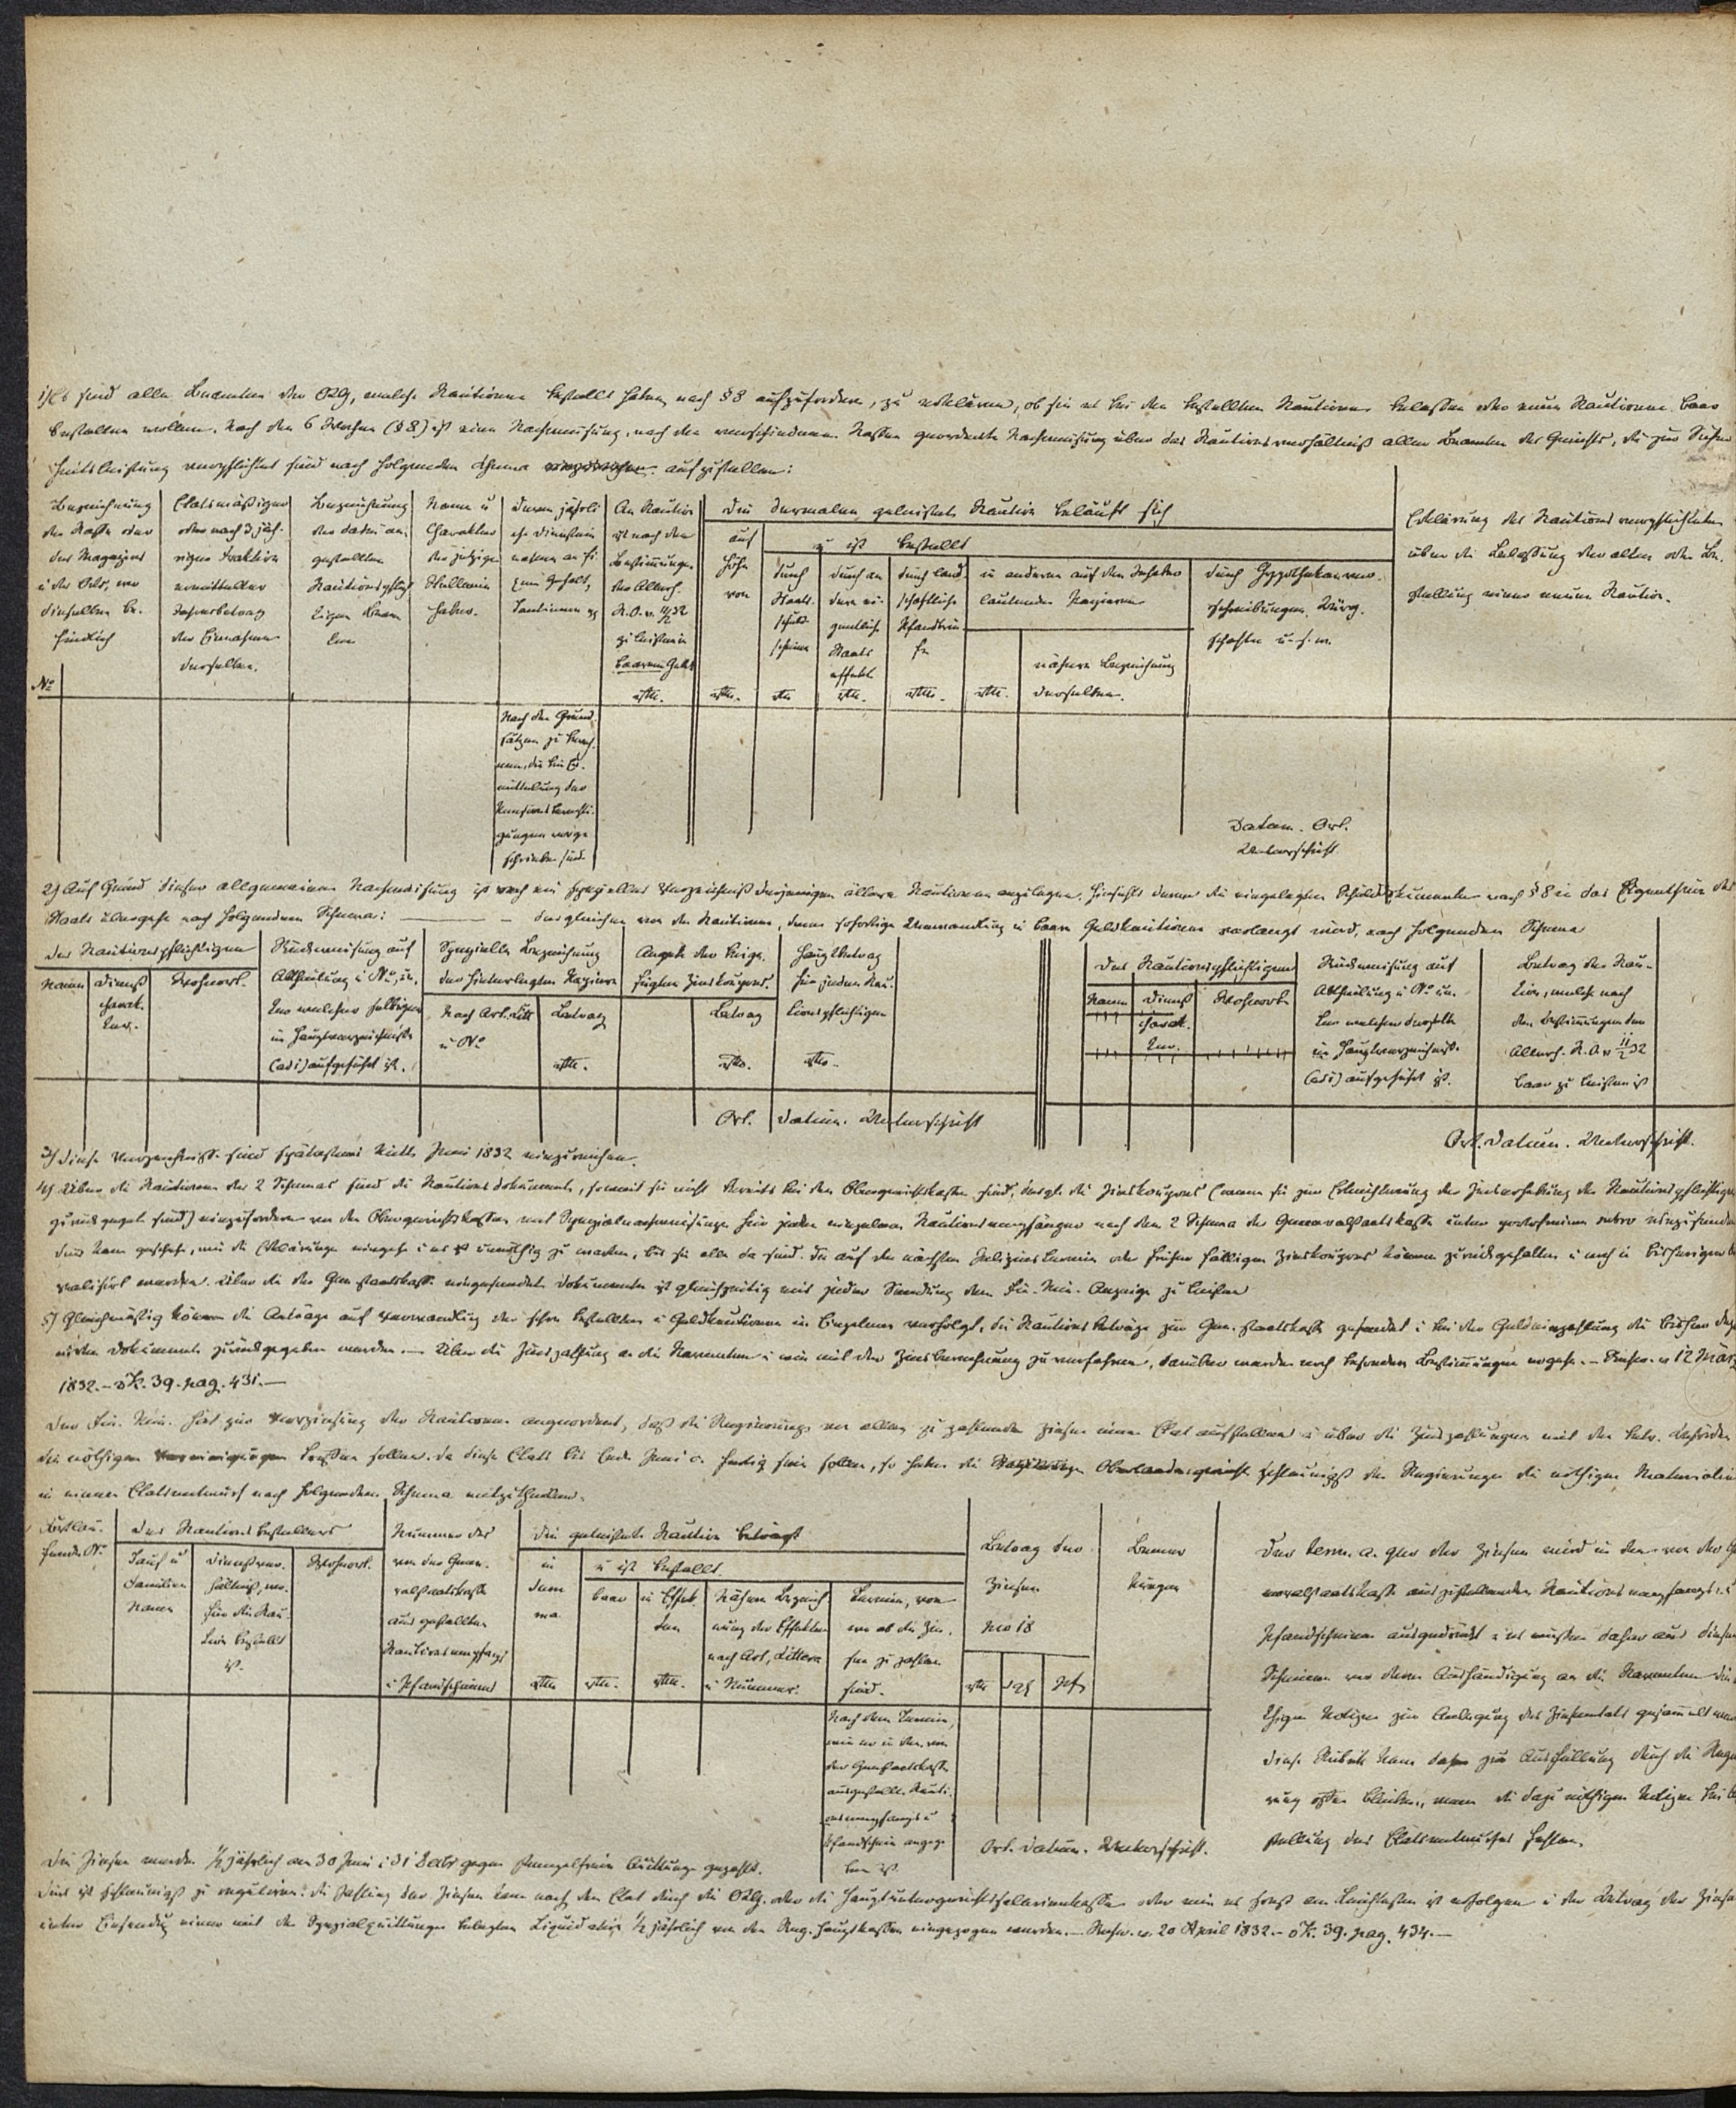 1) Es sind alle Beamten der OLG, welche Kautionen bestellt haben nach § 8 aufzufordern, zu erklären, ob sie es bei den bestellten Kautionen belassen oder neue Kautionen baar
bestellen wollen. Nach den 6 Wochen (§ 8) ist eine Nachweisung, nach den verschiedenen Kassen geordnete Nachweisung über das Kautionsverhältniß aller Beamten des Gerichts, die zur Sicher
heitsleistung verpflichtet sind nach folgendem Schema aufzustellen:
No
Bezeichnung
der Kasse oder
des Magazins
u des Orts, wo
dieselben be-
findlich
Etatsmäßiger
oder nach 3 jäh-
riger Fraktion
ermittelter
Jahresbetrag
der Einnahmen
derselben.
Bezeichnung
der dabei an-
gestellten
Kautionspflich
tigen Beam
ten
Name u
Charakter
der jetzigen
Stellenin
haber.
Deren jährli
che Dienstein
nahmen an fi
xem Gehalt,
Tantiemen pp
An Kaution
ist nach den
Bestimmungen
der Allerh.
K.O. v. 11/2 32
zu leisten in
baarem Gelde
rthl.
Die dermalen geleistete Kaution beläuft sich
auf
Höhe
von
rthl.
u ist bestellt
durch
Staats-
schuld
scheine
rthl
durch an
dere ei-
gentliche
Staats
effekten
rthl.
durch land
schaftliche
Pfandbrie-
fe
rthl.
in anderen auf den Inhaber
lautenden Papieren
rthl.
nähere Bezeichnung
derselben.
durch Hypothekenver-
schreibungen, Bürg-
schaften u. s. w.
Erklärung des Kautionsverpflichteten
über die Belassung der alten oder Be-
stellung einer neuen Kaution.
Nach den Grund
sätzen zu berech-
nen, die bei Er-
mittelung der
Pensionsberechti-
gungen vorge
schrieben sind
Datum. Ort.
Unterschrift.
2) Auf Grund dieser allgemeinen Nachweisung ist noch ein spezielles Verzeichniß derjenigen ältere Kautionen anzulegen, hinsichts deren die eingelegten Schulddokumente nach § 8 in das Eigenthum des
Staats übergehen nach folgendem Schema: — desgleichen von den Kautionen, deren sofortige Umwandlung in baare Geldkautionen verlangt wird, nach folgendem Schema
Des Kautionspflichtigen
Namen
Dienst
charak-
ter.
Wohnort.
Rückweisung auf
Abtheilung u No, un-
ter welcher selbiger
im Hauptverzeichniße
(ad 1) aufgeführt ist.
Spezielle Bezeichnung
der hinterlegten Papiere
Nach Art. Litt
u No
Betrag
rthl.
Angabe der beige-
fügten Zinskoupons.
Betrag
rthl.
Hauptbetrag
für jeden Kau-
tionspflichtigen
rthl.
Ort. Datum. Unterschrift
Des Kautionspflichtigen
Namen
Dienst
charak-
ter.
Wohnort.
Rückweisung auf
Abtheilung u No un-
ter welcher derselbe
im Hauptverzeichniß
(ad 1) aufgeführt ist.
Betrag der Kau-
tion, welche nach
den Bestimmungen der
Allerh. K.O. v 11/2 32
baar zu leisten ist
Ort. Datum. Unterschrift.
3) Diese Verzeichniße sind spätestens Mitte Juni 1832 einzureichen.
4) Über die Kautionen des 2 Schemas sind die Kautionsdokumente, soweit sie nicht bereits bei den Obergerichtskassen sind, desgl. die Zinskoupons (wenn sie zur Erleichterung der Zinserhebung den Kautionspflichtigen
zurück gegeben sind) einzufordern von den Obergerichtskassen mit Spezialnachweisungen für jeden einzelnen Kautionsempfänger nach dem 2 Schema der Generalstaatskasse unter einzusenden
dies kann geschehen, wie die Erklärungen eingehen u es ist unnöthig zu warten, bis sie alle da sind. Die auf den nächsten oder früher fälligen Zinskoupons können zurückgehalten u noch in bisheriger
realisirt werden. Über die der Gen. staatskasse eingesendeten Dokumente ist gleichzeitig mit jeder Sendung dem Fin. Min. Anzeige zu leisten
5) Gleichmäßig können die Anträge auf Verwandlung der schon bestellten in Geldkautionen im Einzelnen verfolgt, die Kautionsbeträge zur Gen. staatskasse gesendet u bei der Geldeinzahlung die bisher
Dokumente zurückgegeben werden. — Über die Zinszahlung an die Beamten u wie mit der Zinsberechnung zu verfahren, darüber werden noch besondere Bestimmungen ergehen. — Reskr. v 12 März
1832. – 39. pag. 431. —
Der Fin. Min. hat zur Vorziehung der Kautionen angeordnet, daß die Regierungen von allen zu zahlenden Zinsen einen Etat aufstellen u über die Zinszahlungen mit den betr. Behörden
die nöthigen treffen sollen. Da diese Etats bis Ende Juni c. fertig sein sollen, so haben die Oberlandesgerichte schleunigst den Regierungen die nöthigen Materialien
in einem Etatsentwurf nach folgendem Schema mitzutheilen.
Fortlau-
fende No
Des Kautionsbestellers
Tauf u
Familien
Namen
Dienstver-
hältniß, wo-
für die Kau
tion bestellt
ist.
Wohnort.
Nummer des
von der Gene-
ralstaatskasse
ausgestellten
Kautionsempfangs
u Pfandscheins
Die geleistete Kaution beträgt
in
Sum
ma
rthl
u ist bestellt
baar
rthl.
in Effek-
ten
rthl.
Nähere Bezeich-
nung der Effekten
nach Art, Littera
u Nummer.
Termin, von
wo ab die Zin-
sen zu zahlen
sind.
Betrag der
Zinsen
pro 18
rth
sgr
pf
Bemer
kungen
Nach dem Termin,
wie er in dem von
der Genstaatskasse
ausgestellten Kauti-
onsempfangs u
Pfandschein angege
ben ist.
Ort. Datum. Unterschrift.
Der term. a quo der Zinsen wird in den von der Ge
neralstaatskasse auszustellenden Kautionsempfangs u
Pfandscheinen ausgedrückt u es müssen daher aus diesen
Scheinen vor deren Aushändigung an die Beamten die
thigen Notizen zur Anlegung des Zinsenetats gesammelt wer
Diese Rubrik kann daher zur Ausfüllung durch die Regie
rung offen bleiben, wenn die dazu nöthigen Notizen bei
stellung des Etatsentwurfes fehlen.
Die Zinsen werden 1/2 jährlich am 30 Juni u 31 Decbr gegen stempelfreie Quittungen gezahlt.
Dies ist schleunigst zu reguliren. Die Zahlung der Zinsen kann nach dem Etat durch die OLG. oder die Hauptuntergerichtssalarienkasse oder wie es sonst am leichtesten ist erfolgen u der Betrag der Zinsen
unter Einsendung einer mit den Spezialquittungen belegten Liquidation 1/2 jährlich von den Reg. Hauptkassen eingezogen werden. — Reskr. v. 20 April 1832. – 39. pag. 434. —